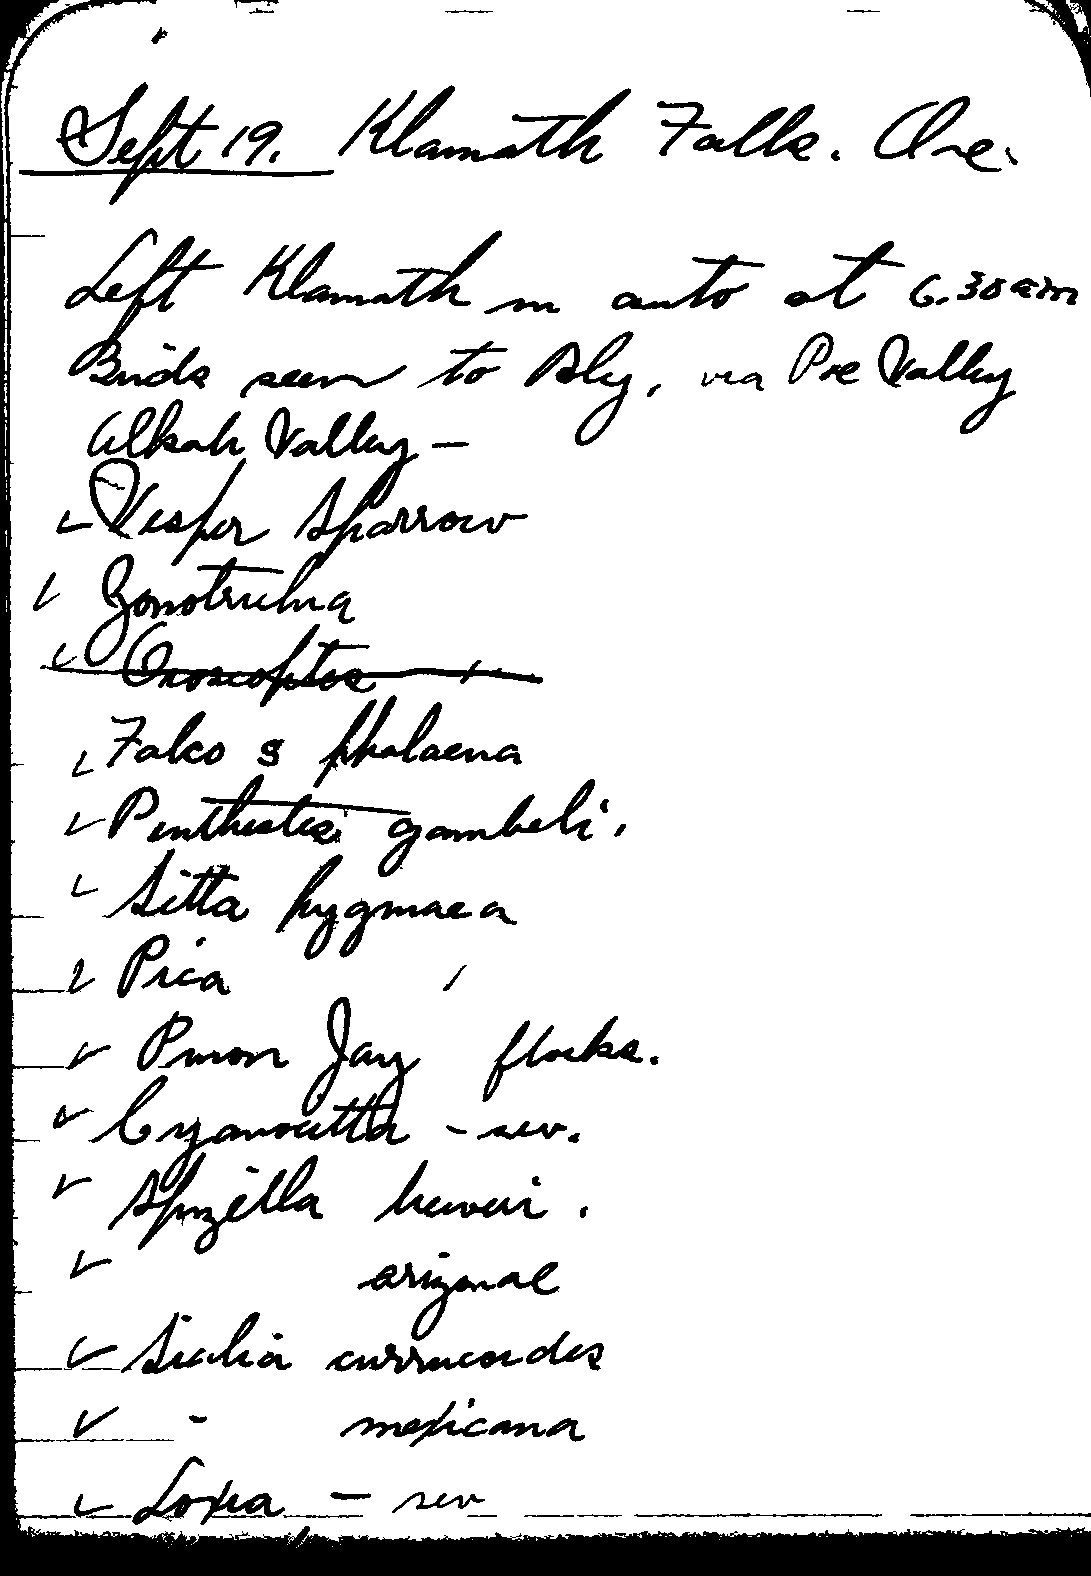 Sept 19. Klamath Falls. Ore.
Left Klamath in auto at 6.30 am
Birds seen to Bly, via Poe Valley
Alkali Valley —
✓ Vesper Sparrow
✓ Zonotrichia
✓ Oroscoptes /
✓ Falco s phalaena
✓ Penthestes gambeli.
✓ Sitta pygmaea
✓ Pica /
✓ Pinon Jay flocks.
✓ Cyanocitta - sev.
✓ Spizella breweri.
✓ arizonae
✓ Sialia currucoides
✓ - mexicana
✓ Loxia — sev